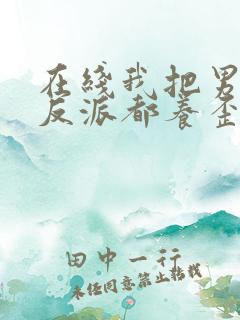 在綫我把男
反派都養歪
田中一行
未任同意禁止转载